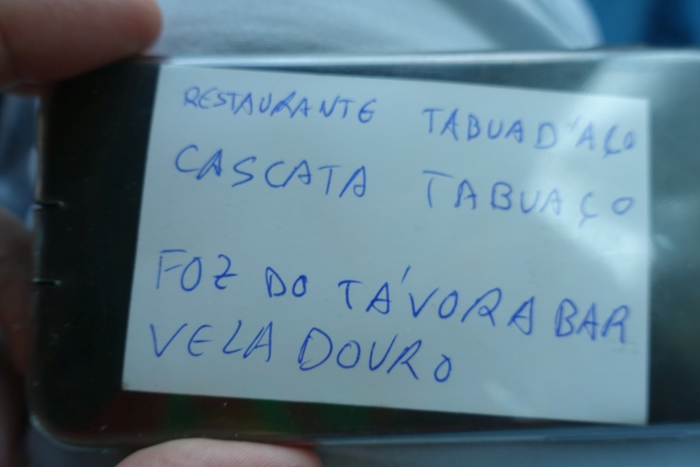 RESTAURANTE TABUAD'AÇO
CASCATA TABUAÇO
FOZ DO TÁVORA BAR
VELA DOURO